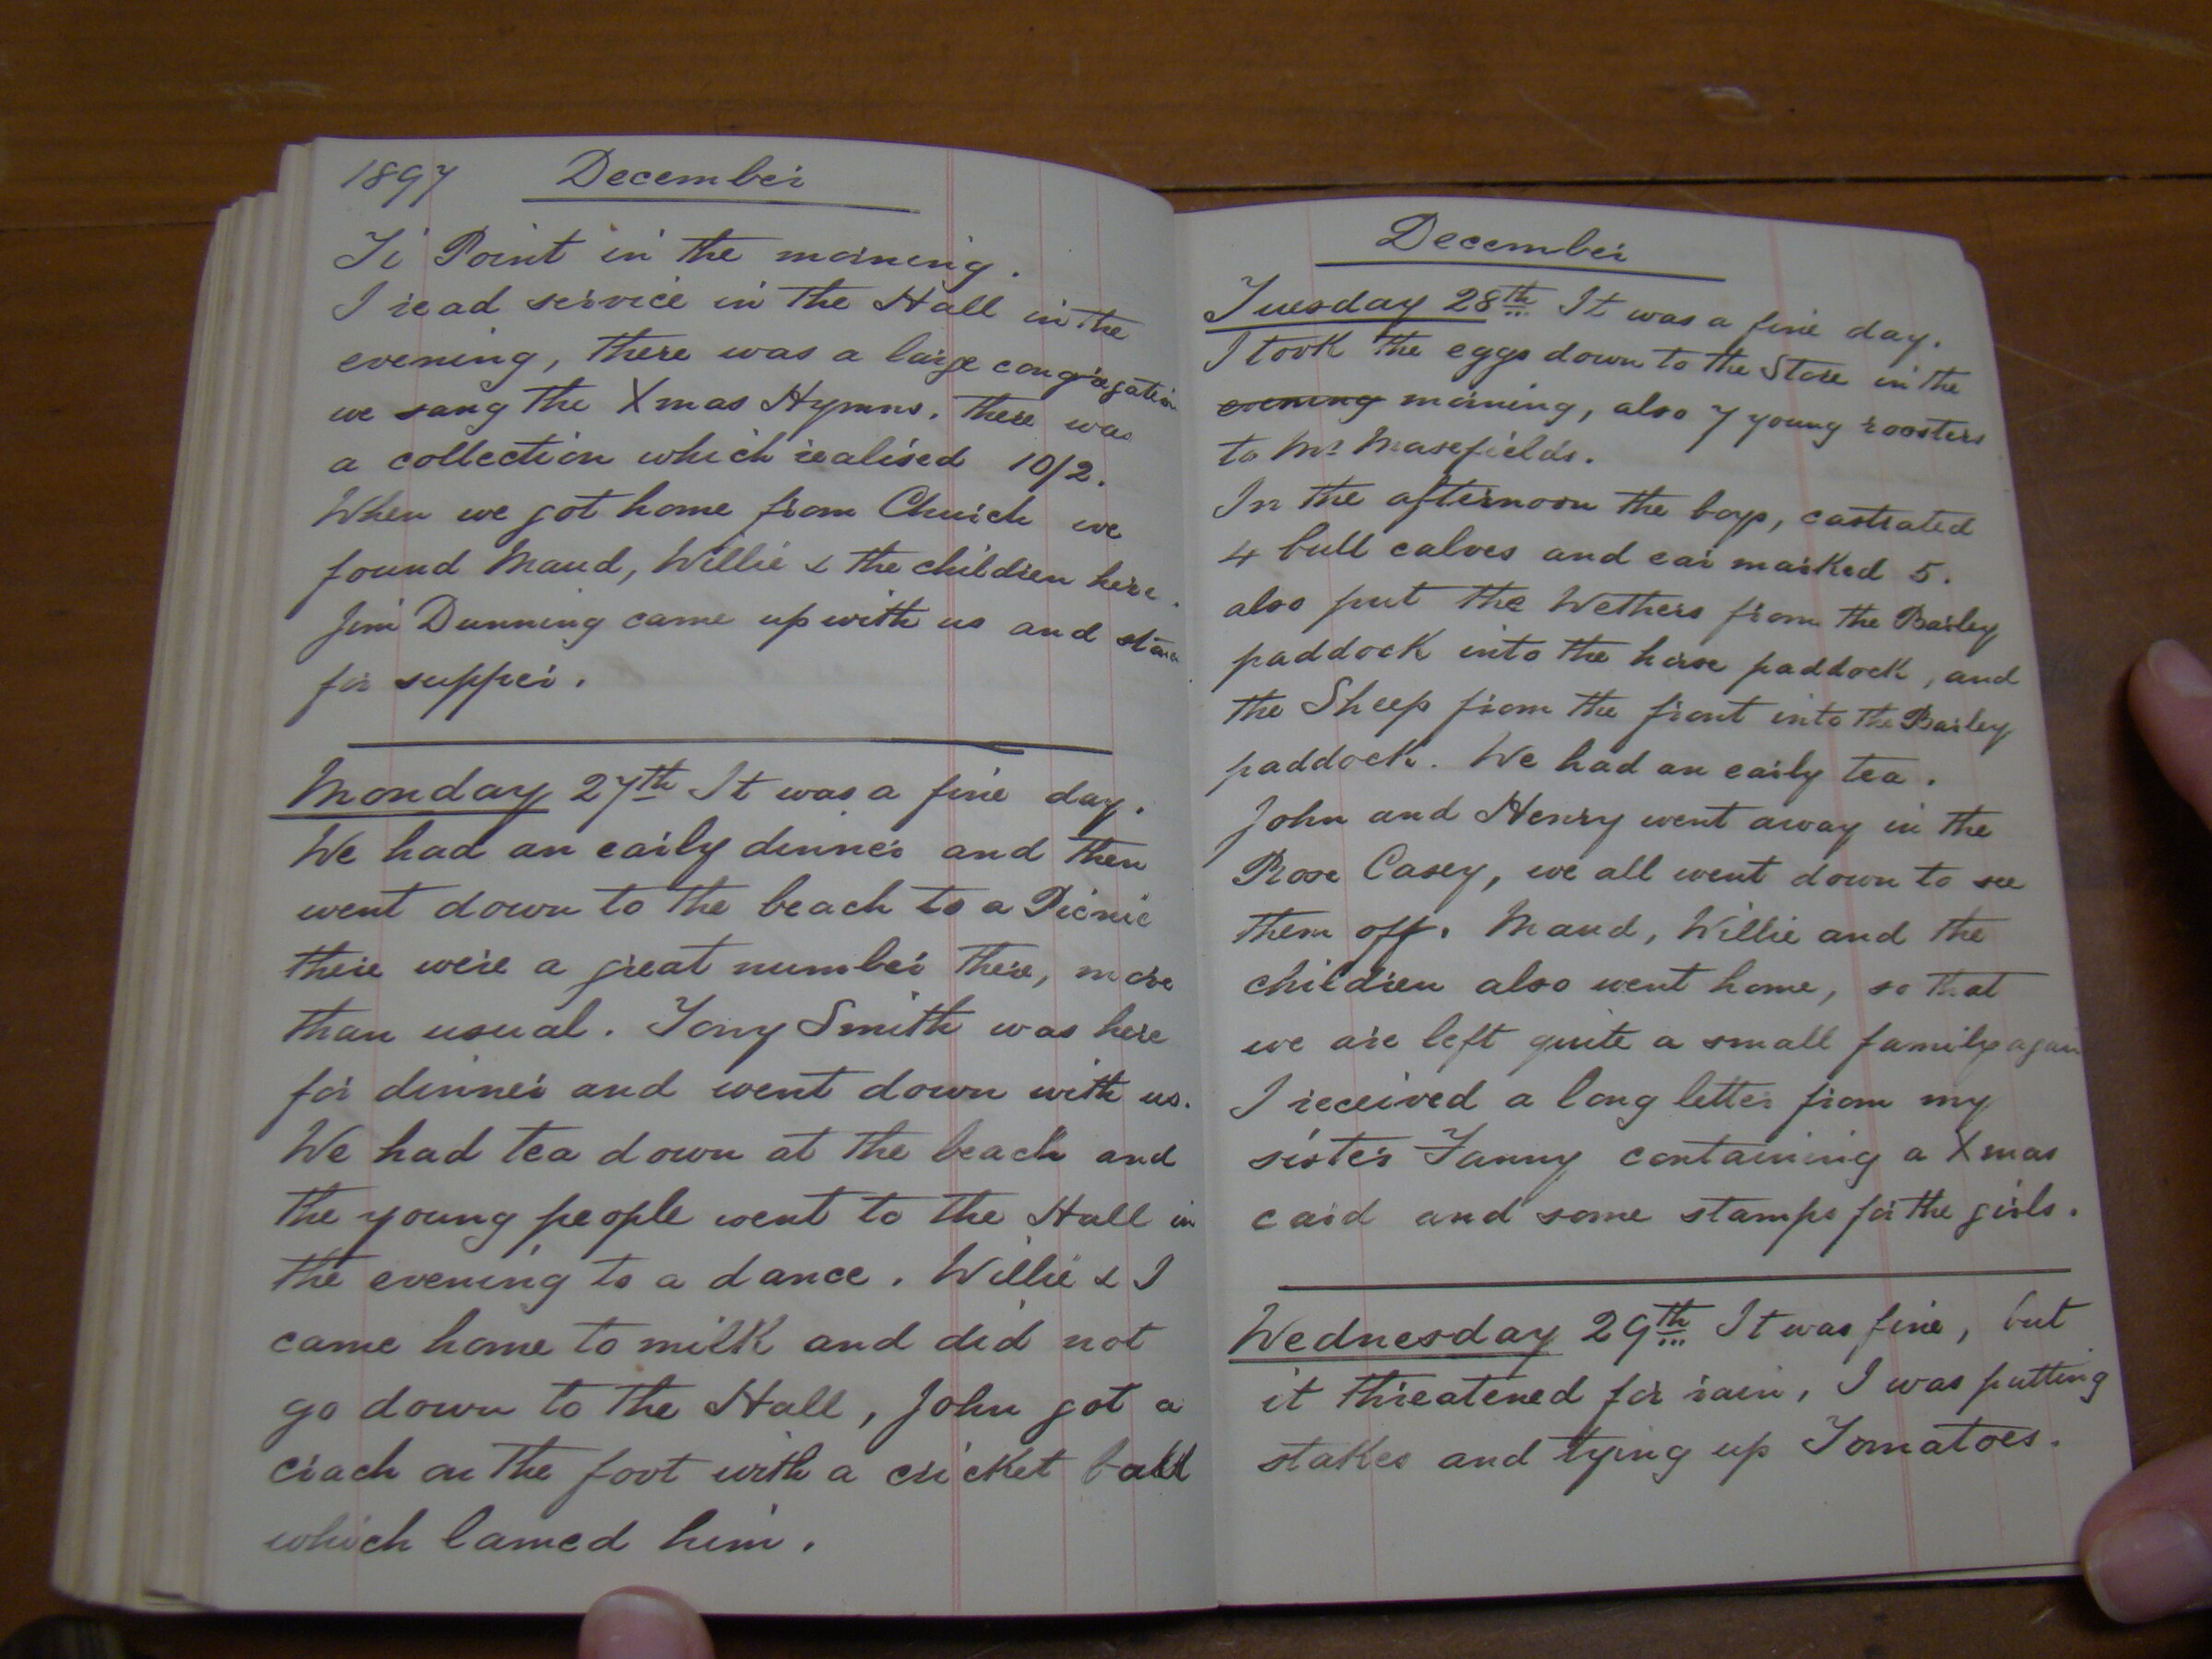 1897 December
Ti Point in the morning.
I read service in the Hall in the
evening, there was a large congregation
we sang the Xmas Hymns. There was
a collection which realised 10/2.
When we got home from Church we
found Maud, Willie & the children here.
Jim Dunning came up with us and
for supper.
Monday 27th It was a fine day.
We had an early dinner and then
went down to the beach to a Picnic
there were a great number there, more
than usual. Tony Smith was here
for dinner and went down with us.
We had tea down at the beach and
the young people went to the Hall in
the evening to a dance. Willie & I
came home to milk and did not
go down to the Hall, John got a
crack on the foot with a cricket ball
which lamed him.
December
Tuesday 28th It was a fine day.
I took the eggs down to the Store in the
evening morning, also 7 young roosters
to Mr Masefields.
In the afternoon the boys, castrated
4 bull calves and ear marked 5.
also put the Wethers from the Barley
paddock into the horse paddock, and
the Sheep from the front into the Barley
paddock. We had an early tea.
John and Henry went away in the
Rose Casey, we all went down to see
them off. Maud, Willie and the
children also went home, so that
we are left quite a small family again
I received a long letter from my
sister Fanny containing a Xmas
card and some stamps for the girls.
Wednesday 29th It was fine, but
it threatened for rain, I was putting
stakes and tying up Tomatoes.